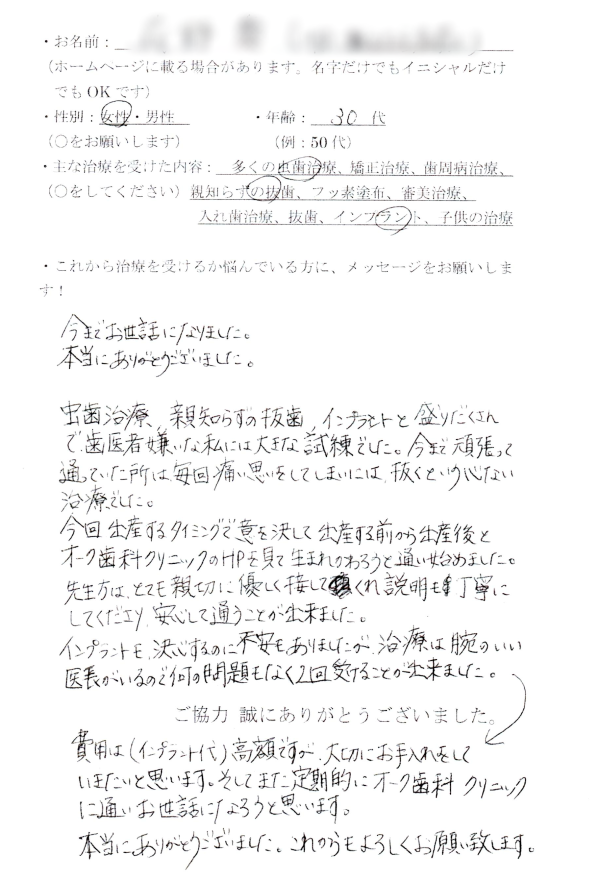 ・お名前：
（ホームページに載る場合があります。名字だけでもイニシャルだけ
でもOKです）
・性別：女性・男性　・年齢：30 代
（○をお願いします）　（例：50代）
・主な治療を受けた内容：　多くの虫歯治療、矯正治療、歯周病治療、
（○をしてください）親知らずの抜歯、フッ素塗布、審美治療、
入れ歯治療、抜歯、インプラント、子供の治療
・これから治療を受けるか悩んでいる方に、メッセージをお願いしま
す！
今までお世話になりました。
本当にありがとうございました。
虫歯治療、親知らずの抜歯、インプラントと盛りだくさん
で歯医者嫌いな私には大きな試練でした。今まで頑張って
通っていた所は毎回痛い思いをしてしまいには、抜くという心ない
治療でした。
今回出産するタイミングで意を決して出産する前から出産後と
オーク歯科クリニックのHPを見て生まれかわろうと通い始めました。
先生方は、とても親切に優しく接してくれ説明も丁寧に
してくださり、安心して通うことが出来ました。
インプラントも、決心するのに不安もありましたが、治療は腕のいい
医長がいるので何の問題もなく2回受けることが出来ました。
ご協力 誠にありがとうございました。
費用は（インプラント代）高額ですが、大切にお手入れをして
いきたいと思います。そしてまた定期的にオーク歯科クリニック
に通いお世話になろうと思います。
本当にありがとうございました。これからもよろしくお願い致します。